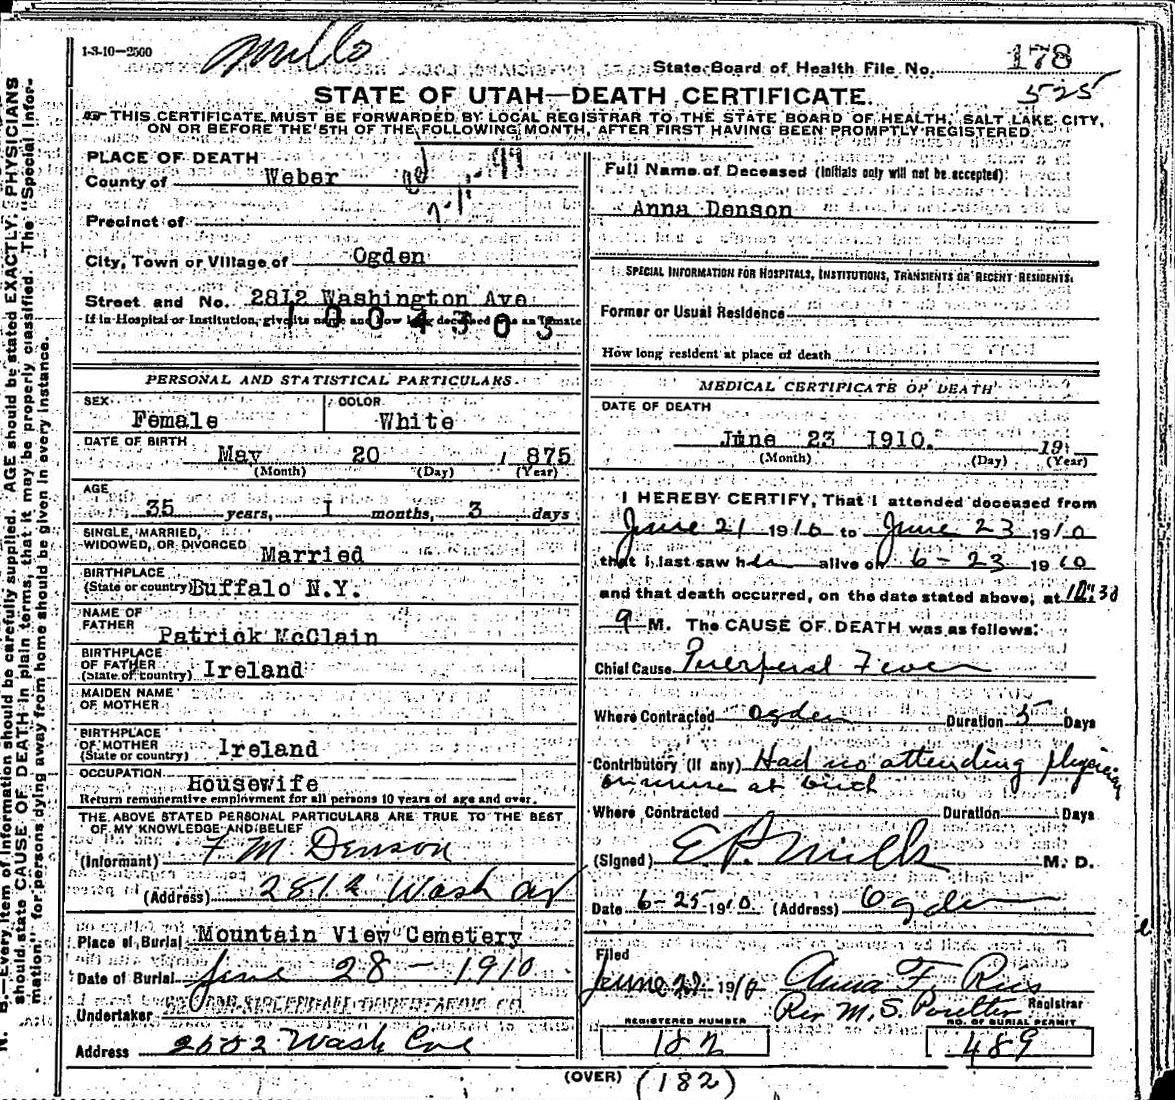 1-3-10-2500
Mills
State Board of Health File No. 178
525
STATE OF UTAH—DEATH CERTIFICATE.
THIS CERTIFICATE MUST BE FORWARDED BY LOCAL REGISTRAR TO THE STATE BOARD OF HEALTH, SALT LAKE CITY,
ON OR BEFORE THE 5TH OF THE FOLLOWING MONTH, AFTER FIRST HAVING BEEN PROMPTLY REGISTERED
PLACE OF DEATH
County of Weber
Precinct of
City, Town or Village of Ogden
Street and No. 2812 Washington Ave
If in Hospital or Institution, give its name and how long deceased was an Inmate
1004303
PERSONAL AND STATISTICAL PARTICULARS
SEX Female
COLOR White
DATE OF BIRTH May 20, 1875
(Month) (Day) (Year)
AGE 35 years, 1 months, 3 days
SINGLE, MARRIED,
WIDOWED, OR DIVORCED Married
BIRTHPLACE
(State or country) Buffalo N.Y.
NAME OF
FATHER Patrick McClain
BIRTHPLACE
OF FATHER
(State or country) Ireland
MAIDEN NAME
OF MOTHER
BIRTHPLACE
OF MOTHER
(State or country) Ireland
OCCUPATION Housewife
Return remunerative employment for all persons 10 years of age and over.
THE ABOVE STATED PERSONAL PARTICULARS ARE TRUE TO THE BEST
OF MY KNOWLEDGE AND BELIEF
(Informant) F M Denson
(Address) 2812 Wash av
Place of Burial Mountain View Cemetery
Date of Burial June 28 - 1910
Undertaker
Address 2582 Wash Ave
Full Name of Deceased (Initials only will not be accepted)
Anna Denson
SPECIAL INFORMATION FOR HOSPITALS, INSTITUTIONS, TRANSIENTS OR RECENT RESIDENTS.
Former or Usual Residence
How long resident at place of death
MEDICAL CERTIFICATE OF DEATH
DATE OF DEATH
June 23 1910. 19
(Month) (Day) (Year)
I HEREBY CERTIFY, That I attended deceased from
June 21 1910 to June 23 1910
that I last saw her alive on 6-23 1910
and that death occurred, on the date stated above, at 10:30
M. The CAUSE OF DEATH was as follows:
Chief Cause Puerperal Fever
Where Contracted Ogden Duration 5 Days
Contributory (if any) Had no attending physician
or nurse at birth
Where Contracted Duration Days
(Signed) E P Mills M. D.
Date 6-25 1910. (Address) Ogden
Filed
June 27 1910 Anna F. Ries
Registrar
REGISTERED NUMBER
182
NO. OF BURIAL PERMIT
489
(OVER) (182)
N. B.—Every item of information should be carefully supplied. AGE should be stated EXACTLY. PHYSICIANS
should state CAUSE OF DEATH in plain terms, that it may be properly classified. The "Special Infor-
mation" for persons dying away from home should be given in every instance.